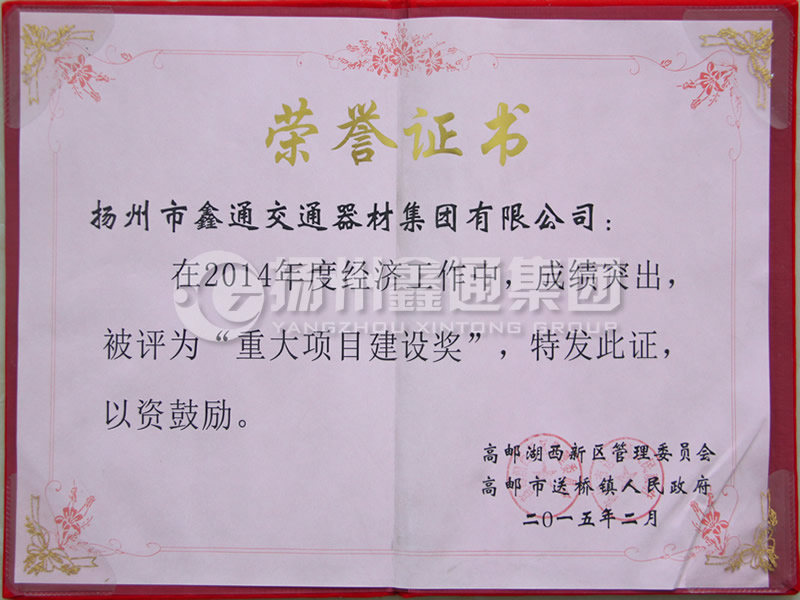 荣誉证书
扬州市鑫通交通器材集团有限公司：
在2014年度经济工作中，成绩突出，
扬州鑫通集团
YANGZHOU XINTONG GROUP
被评为“重大项目建设奖”，特发此证，
以资鼓励。
高邮湖西新区管理委员会
高邮市送桥镇人民政府
二〇一五年二月